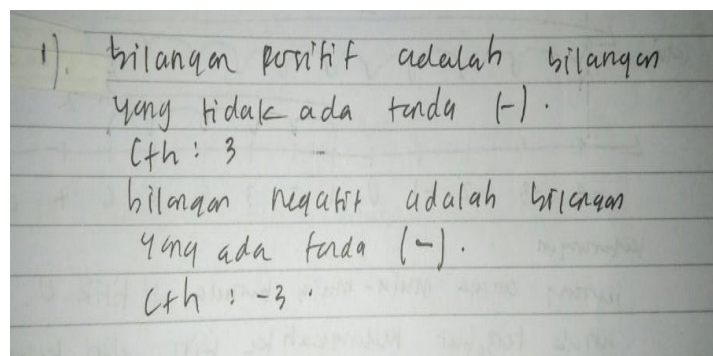 1). bilangan positif adalah bilangan
yang tidak ada tanda (-).
Cth : 3
bilangan negatif adalah bilangan
yang ada tanda (-).
Cth : -3.